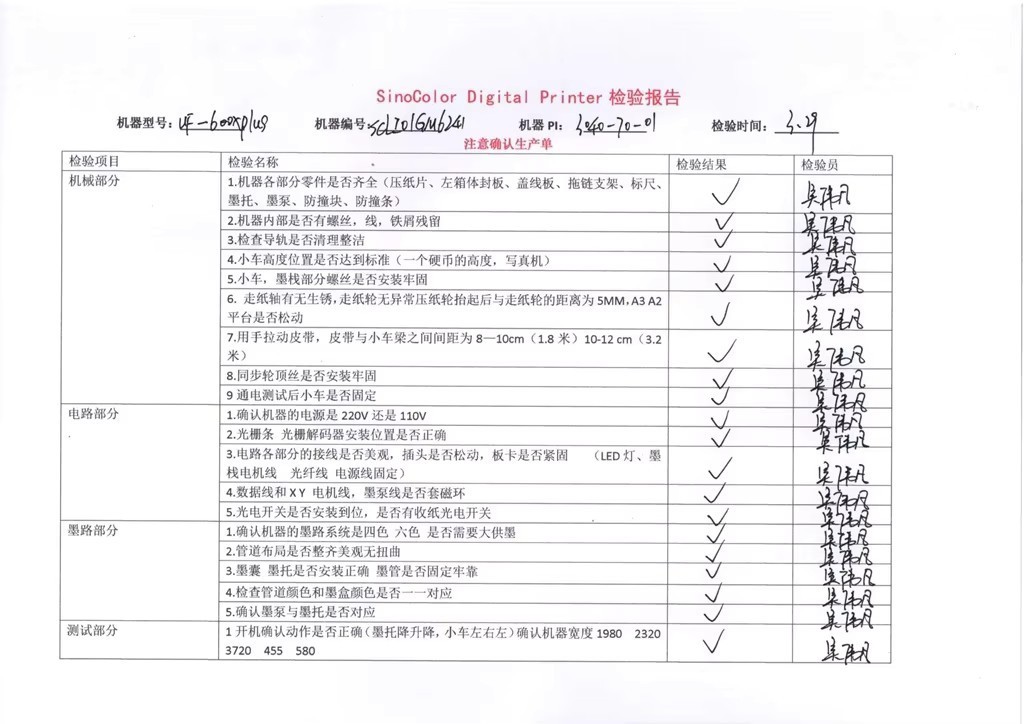 SinoColor Digital Printer 检验报告
机器型号：UF-600xplus 机器编号： 机器 PI：3040-70-01 检验时间：3.29
注意确认生产单
检验项目 检验名称 检验结果 检验员
机械部分 1.机器各部分零件是否齐全（压纸片、左箱体封板、盖线板、拖链支架、标尺、
墨托、墨泵、防撞块、防撞条） ✓
2.机器内部是否有螺丝，线，铁屑残留 ✓
3.检查导轨是否清理整洁 ✓
4.小车高度位置是否达到标准（一个硬币的高度，写真机） ✓
5.小车，墨栈部分螺丝是否安装牢固 ✓
6. 走纸轴有无生锈，走纸轮无异常压纸轮抬起后与走纸轮的距离为 5MM，A3 A2
平台是否松动 ✓
7.用手拉动皮带，皮带与小车梁之间间距为 8—10cm（1.8 米）10-12 cm（3.2
米） ✓
8.同步轮顶丝是否安装牢固 ✓
9 通电测试后小车是否固定 ✓
电路部分 1.确认机器的电源是 220V 还是 110V ✓
2.光栅条 光栅解码器安装位置是否正确 ✓
3.电路各部分的接线是否美观，插头是否松动，板卡是否紧固 （LED 灯、墨
栈电机线 光纤线 电源线固定） ✓
4.数据线和 X Y 电机线，墨泵线是否套磁环 ✓
5.光电开关是否安装到位，是否有收纸光电开关 ✓
墨路部分 1.确认机器的墨路系统是四色 六色 是否需要大供墨 ✓
2.管道布局是否整齐美观无扭曲 ✓
3.墨囊 墨托是否安装正确 墨管是否固定牢靠 ✓
4.检查管道颜色和墨盒颜色是否一一对应 ✓
5.确认墨泵与墨托是否对应 ✓
测试部分 1 开机确认动作是否正确（墨托降升降，小车左右左）确认机器宽度 1980 2320
3720 455 580 ✓